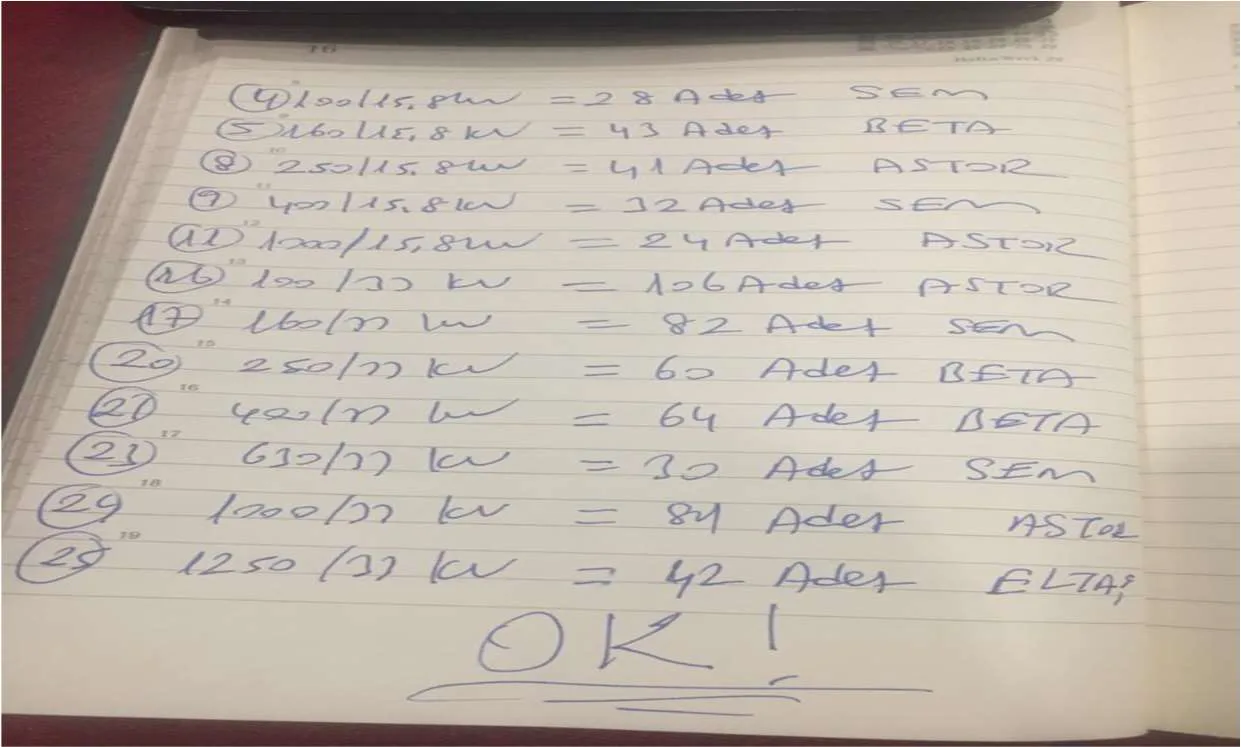 16
④ 100/15,8kv = 28 Adet SEM
⑤ 160/15,8 kv = 43 Adet BETA
⑧ 250/15,8kv = 41 Adet ASTOR
⑨ 400/15,8kv = 32 Adet SEM
⑪ 1000/15,8kv = 24 Adet ASTOR
⑯ 100/33 kv = 106 Adet ASTOR
⑰ 160/33 kv = 82 Adet SEM
⑳ 250/33 kv = 60 Adet BETA
㉑ 400/33 kv = 64 Adet BETA
㉓ 630/33 kv = 30 Adet SEM
1000/33 kv = Adet ASTOR
㉕ 1250/33 kv = 42 Adet ELTAŞ
OK!